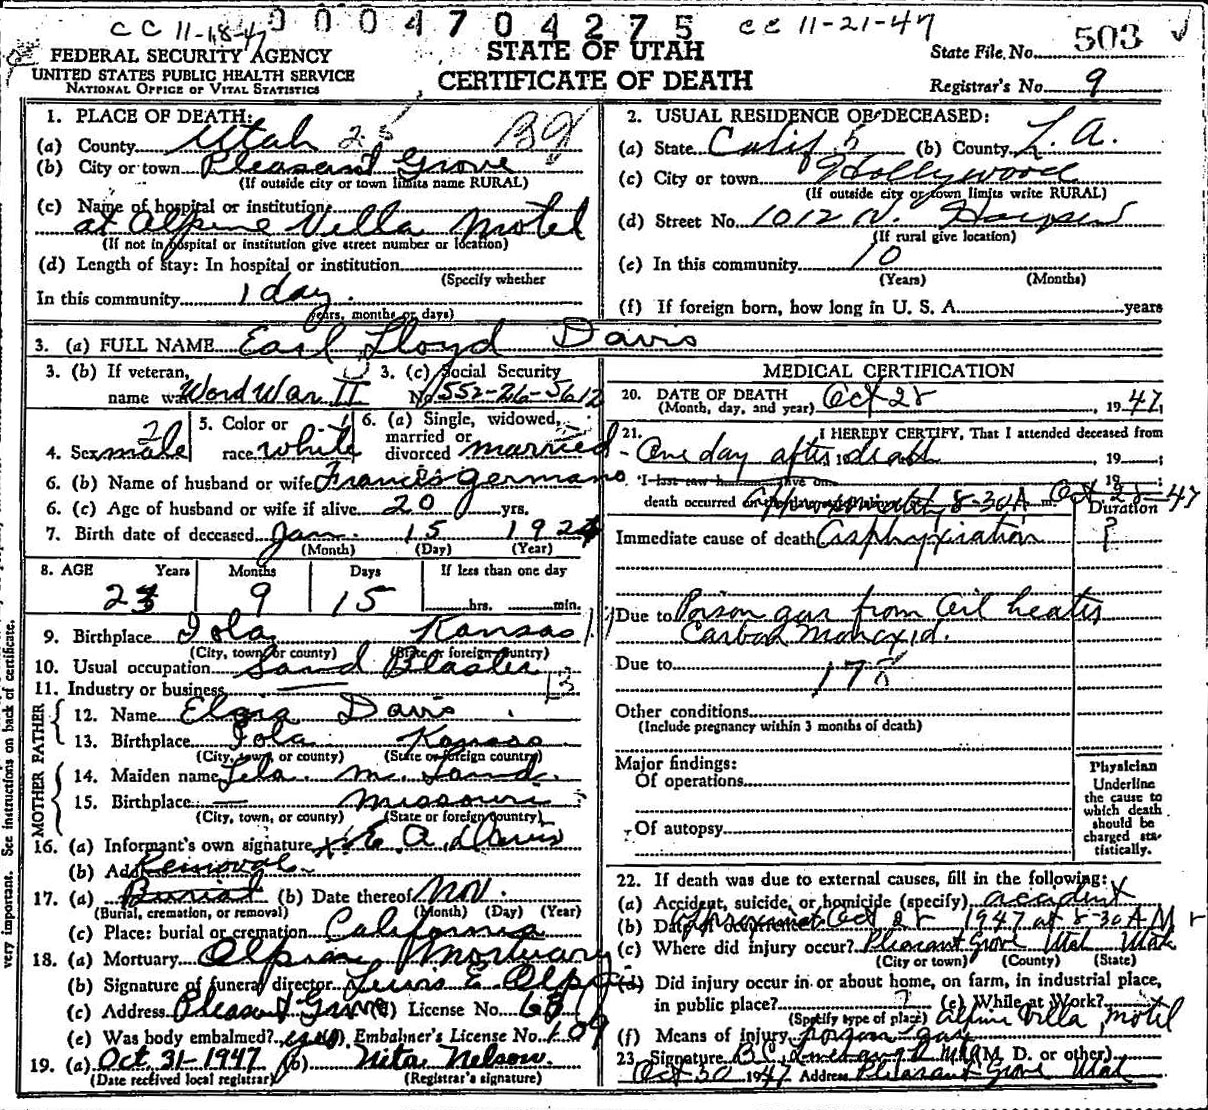 CC 11-18-47
0004704275
CC 11-21-47
FEDERAL SECURITY AGENCY
UNITED STATES PUBLIC HEALTH SERVICE
NATIONAL OFFICE OF VITAL STATISTICS
STATE OF UTAH
CERTIFICATE OF DEATH
State File No. 503
Registrar's No. 9
1. PLACE OF DEATH:
(a) County Utah 25
(b) City or town Pleasant Grove
(If outside city or town limits name RURAL)
(c) Name of hospital or institution:
at Alpine Villa Motel
(If not in hospital or institution give street number or location)
(d) Length of stay: In hospital or institution
(Specify whether
In this community 1 day.
years, months or days)
2. USUAL RESIDENCE OF DECEASED:
(a) State Calif 5 (b) County L. A.
(c) City or town Hollywood
(If outside city or town limits write RURAL)
(d) Street No. 1012 N.
(If rural give location)
(e) In this community 10
(Years) (Months)
(f) If foreign born, how long in U. S. A. years
3. (a) FULL NAME Earl Lloyd Davis
3. (b) If veteran, name war Word War II
3. (c) Social Security No. 552-26-5612
4. Sex male
5. Color or race white
6. (a) Single, widowed, married or divorced married
6. (b) Name of husband or wife Frances Germano
6. (c) Age of husband or wife if alive 20 yrs.
7. Birth date of deceased Jan. 15 1924
(Month) (Day) (Year)
8. AGE Years Months Days If less than one day
23 9 15 hrs. min.
9. Birthplace Iola Kansas
(City, town, or county) (State or foreign country)
10. Usual occupation Sand Blaster
11. Industry or business
FATHER
12. Name Davis
13. Birthplace Iola Kansas
(City, town, or county) (State or foreign country)
MOTHER
14. Maiden name Lela
15. Birthplace — Missouri
(City, town, or county) (State or foreign country)
16. (a) Informant's own signature x E. A. Davis
(b) Add
Removal
17. (a) Burial (b) Date thereof Nov.
(Burial, cremation, or removal) (Month) (Day) (Year)
(c) Place: burial or cremation California
18. (a) Mortuary Olpin Mortuary
(b) Signature of funeral director Lewis E. Olpin
(c) Address Pleasant Grove (d) License No. 68
(e) Was body embalmed? Embalmer's License No. 109
19. (a) Oct 31-1947 (b) Nita Nelson.
(Date received local registrar) (Registrar's signature)
MEDICAL CERTIFICATION
20. DATE OF DEATH
(Month, day, and year) Oct 28, 1947
21. I HEREBY CERTIFY, That I attended deceased from
One day after death, 19
I last saw h alive on, 19
death occurred on Approximately 8-30 A m. Oct 28-47
Duration
Immediate cause of death Asphyxiation ?
Due to Poison gas from Oil heater
Carbon Monoxid.
Due to
178
Other conditions
(Include pregnancy within 3 months of death)
Major findings:
Of operations
Of autopsy
Physician
Underline the cause to which death should be charged statistically.
22. If death was due to external causes, fill in the following:
(a) Accident, suicide, or homicide (specify) accident
(b) Date of occurrence Approximat Oct 28 1947 at 8-30 A M
(c) Where did injury occur? Pleasant Grove Utah Utah
(City or town) (County) (State)
(d) Did injury occur in or about home, on farm, in industrial place,
in public place? ? (e) While at Work?
(Spetify type of place) Alpine Villa Motel
(f) Means of injury poison gas
23. Signature (M. D. or other)
Oct 30 1947 Address Pleasant Grove Utah
very important. See instructions on back of certificate.